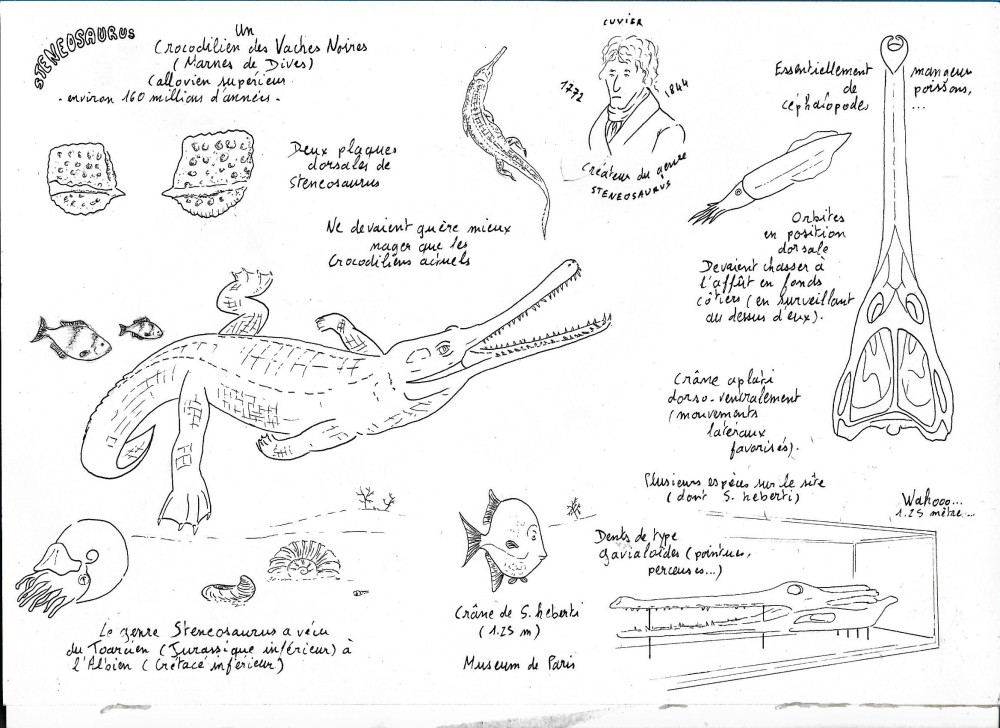 STENEOSAURUS
Un
Crocodilien des Vaches Noires
(Marnes de Dives)
Callovien supérieur
- environ 160 millions d'années -
Deux plaques
dorsales de
Steneosaurus
Ne devaient guère mieux
nager que les
Crocodiliens actuels
CUVIER
1772
1844
Créateur du genre
STENEOSAURUS
Essentiellement
de
céphalopodes
mangeur
poissons,
...
Orbites
en position
dorsale
Devaient chasser à
l'affût en fonds
côtiers (en surveillant
au dessus d'eux).
Crâne aplati
dorso-ventralement
(mouvements
latéraux
favorisés).
Plusieurs espèces sur le site
(dont S. heberti)
Wahooo...
1.25 mètre...
Dents de type
gavialoïdes (pointues,
perceuses...)
Crâne de S. heberti
(1.25 m)
Museum de Paris
Le genre Steneosaurus a vécu
du Toarcien (Jurassique inférieur) à
l'Albien (Crétacé inférieur)